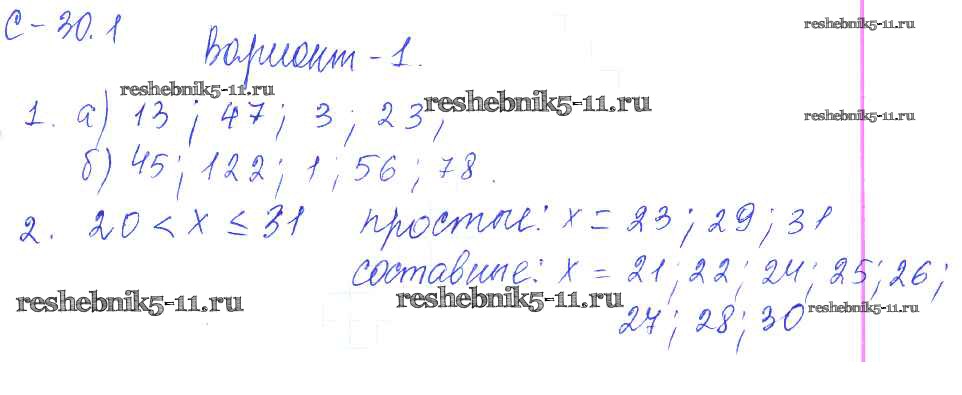 С-30.1
reshebnik5-11.ru
Вариант-1.
reshebnik5-11.ru
reshebnik5-11.ru
1. а) 13; 47; 3; 23;
reshebnik5-11.ru
б) 45; 122; 1; 56; 78.
2. 20 < x ≤ 31 простые: x = 23; 29; 31
составные: x = 21; 22; 24; 25; 26;
reshebnik5-11.ru
reshebnik5-11.ru
reshebnik5-11.ru
27; 28; 30